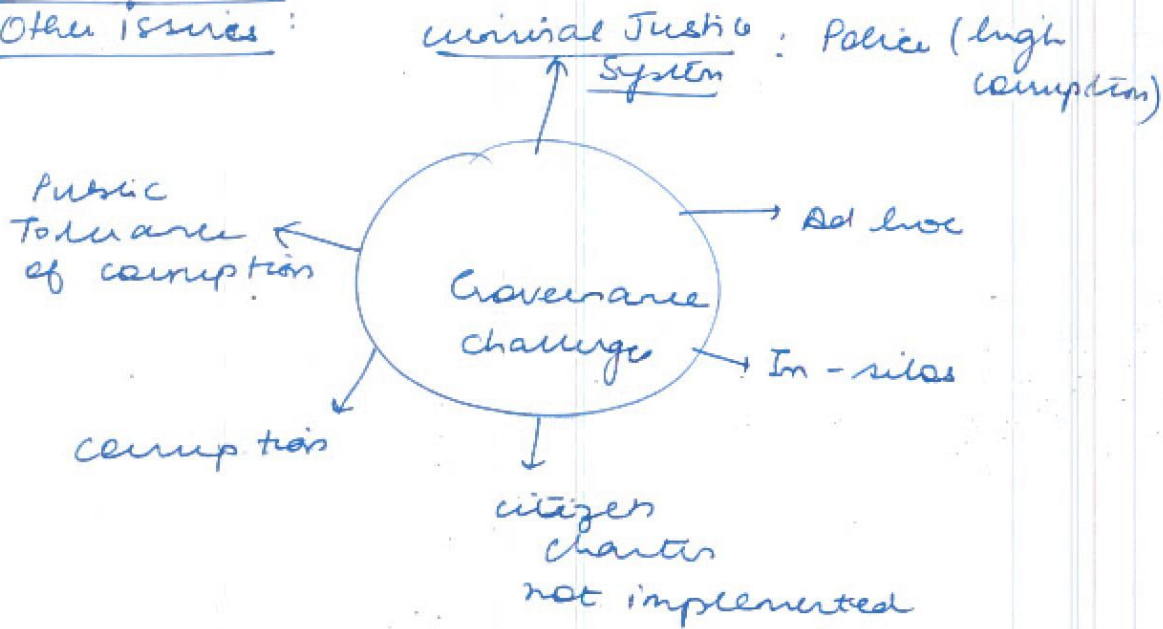 Other issues :
Criminal Justice : Police (high
System
corruption)
Public
Tolerance
of corruption
Ad hoc
Governance
challenge
In - silos
corruption
citizen
charter
not implemented